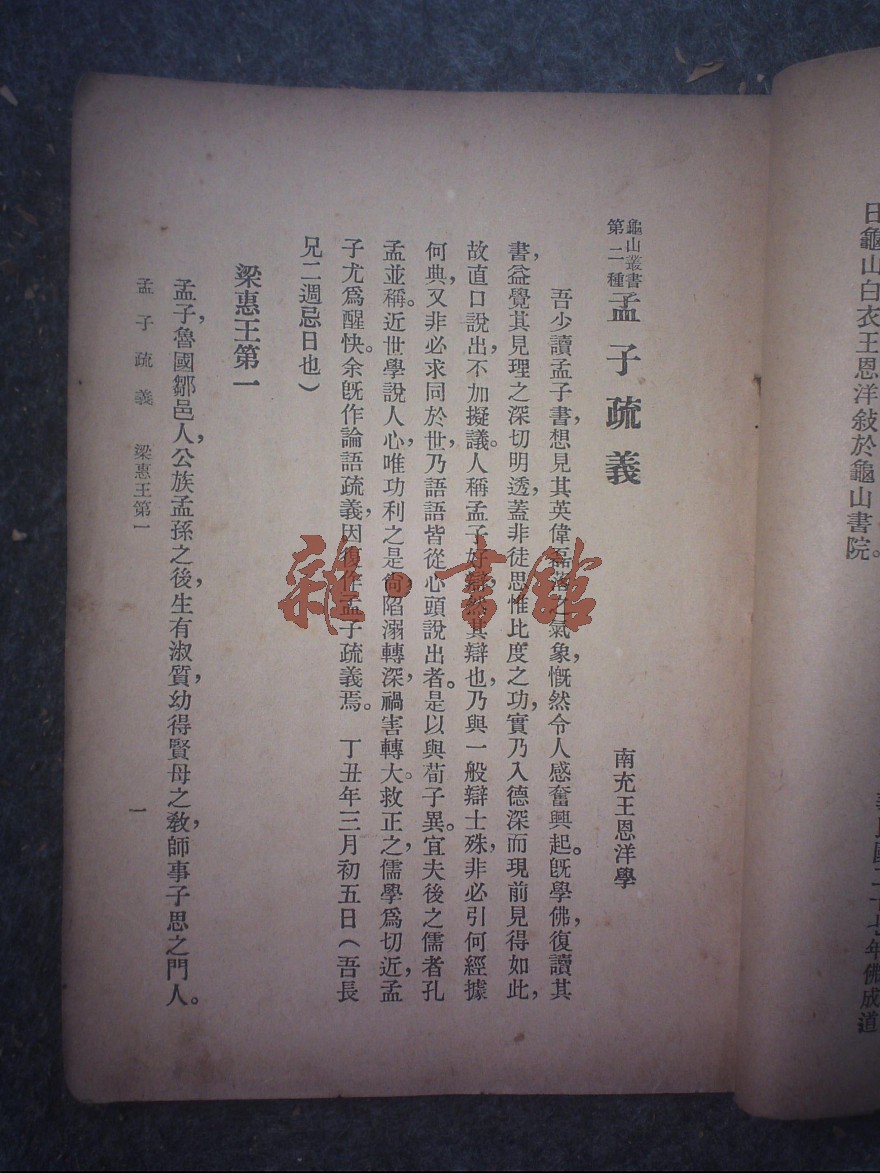 日龜山白衣王恩洋敍於龜山書院。
年佛成道
龜山叢書
第二種
孟子疏義
南充王恩洋學
吾少讀孟子書,想見其英偉磊落之氣象,慨然令人感奮興起。旣學佛,復讀其
書,益覺其見理之深切明透,蓋非徒思惟比度之功,實乃入德深而現前見得如此,
故直口說出,不加擬議。人稱孟子好辯,然其辯也,乃與一般辯士殊,非必引何經據
何典,又非必求同於世,乃語語皆從心頭說出者。是以與荀子異。宜夫後之儒者孔
孟並稱。近世學說人心,唯功利之是尙,陷溺轉深,禍害轉大。救正之,儒學爲切近,孟
子尤爲醒快。余旣作論語疏義,因復作孟子疏義焉。 丁丑年三月初五日(吾長
兄二週忌日也)
梁惠王第一
孟子,魯國鄒邑人,公族孟孫之後,生有淑質,幼得賢母之敎,師事子思之門人。
孟子疏義 梁惠王第一
一
雜·書館